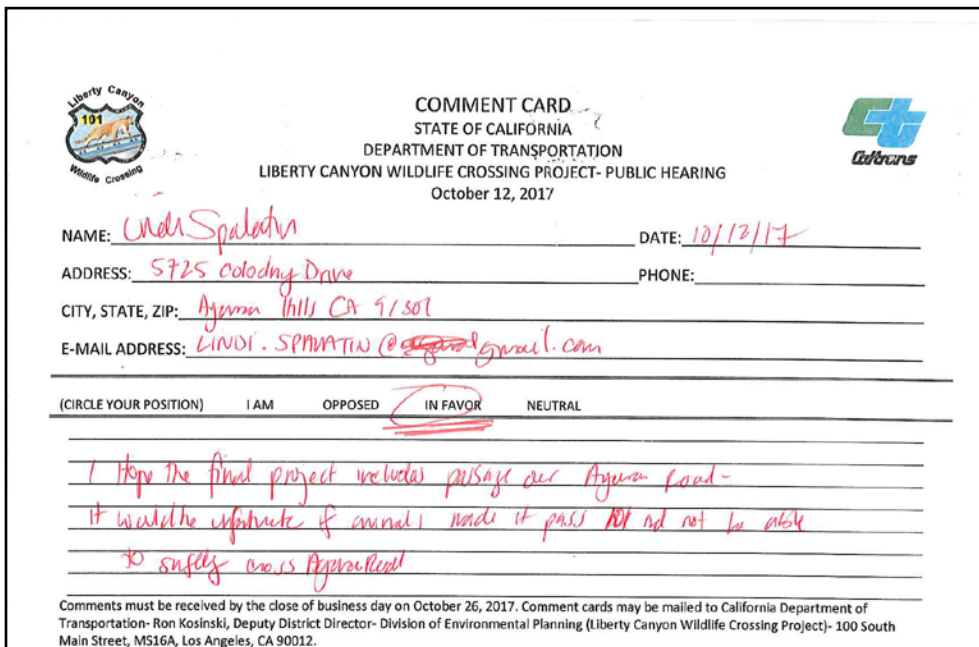 Liberty Canyon
101
Wildlife Crossing
COMMENT CARD
STATE OF CALIFORNIA
DEPARTMENT OF TRANSPORTATION
LIBERTY CANYON WILDLIFE CROSSING PROJECT- PUBLIC HEARING
October 12, 2017
Caltrans
NAME: Lindi Spalatin DATE: 10/12/17
ADDRESS: 5725 Colodny Drive PHONE:
CITY, STATE, ZIP: Agoura Hills CA 91301
E-MAIL ADDRESS: LINDI.SPALATIN@gmail.com
(CIRCLE YOUR POSITION) I AM OPPOSED IN FAVOR NEUTRAL
I Hope the final project includes passage over Agoura Road-
It would be unfortunate if animals made it pass 101 nd not be able
to safely cross Agoura Road
Comments must be received by the close of business day on October 26, 2017. Comment cards may be mailed to California Department of
Transportation- Ron Kosinski, Deputy District Director- Division of Environmental Planning (Liberty Canyon Wildlife Crossing Project)- 100 South
Main Street, MS16A, Los Angeles, CA 90012.